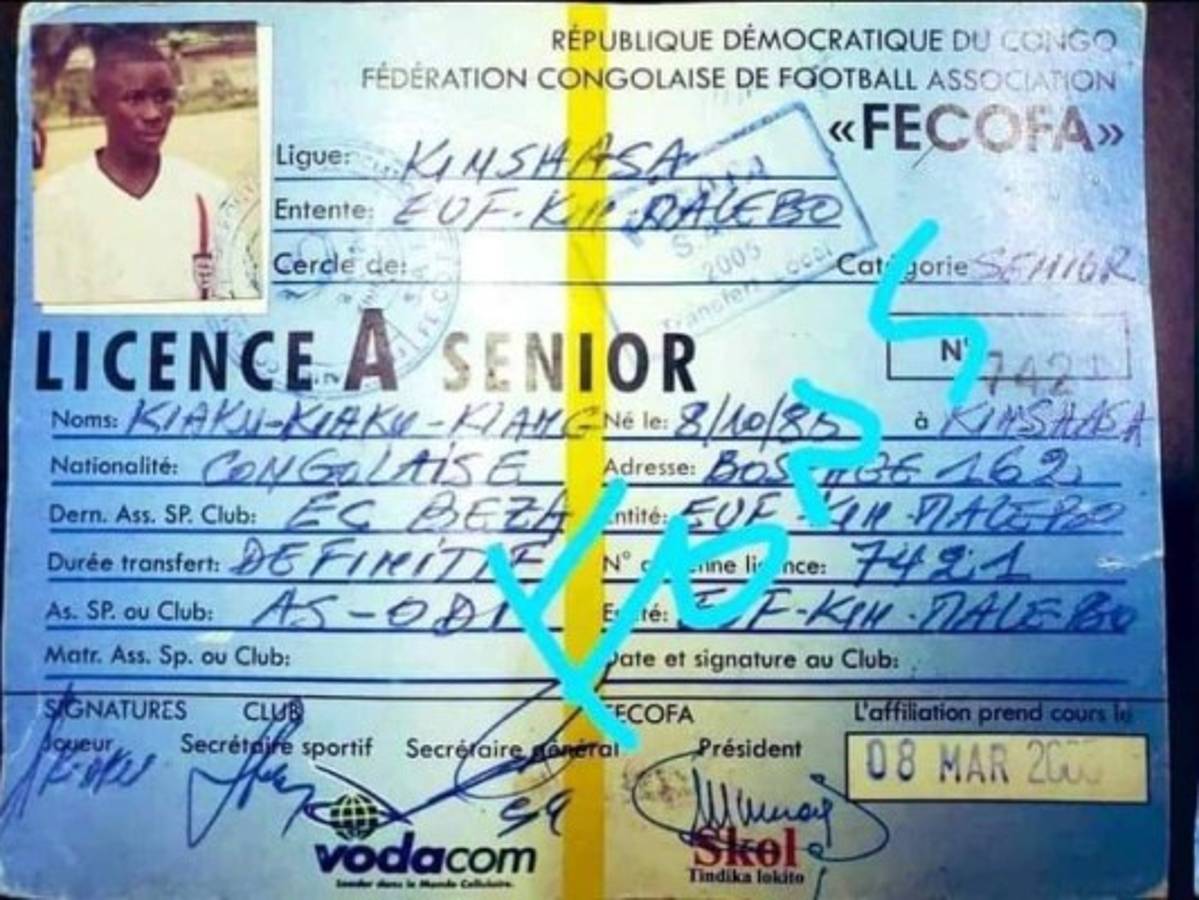 RÉPUBLIQUE DÉMOCRATIQUE DU CONGO
FÉDÉRATION CONGOLAISE DE FOOTBALL ASSOCIATION
«FECOFA»
Ligue: KINSHASA
Entente: EUF-KIN-MALEBO
Cercle de:
Catégorie SENIOR
2005
Transfert Local
LICENCE A SENIOR
N° 7421
Noms: KIAKU-KIAKU-KIANG Né le: 8/10/85 à KINSHASA
Nationalité: CONGOLAISE Adresse: 162
Dern. Ass. SP. Club: FC BEZA Entité: EUF-KIN-MALEBO
Durée transfert: DEFINITIF N° licence: 7421
As. SP. ou Club: AS-ODI Entité: EUF-KIN-MALEBO
Matr. Ass. Sp. ou Club: Date et signature au Club:
SIGNATURES CLUB FECOFA L'affiliation prend cours le
Joueur Secrétaire sportif Secrétaire général Président
08 MAR
vodacom
Leader dans le Monde Cellulaire.
Skol
Tindika lokito